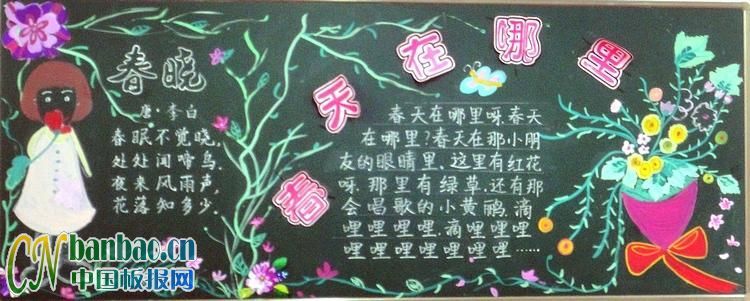 春晓
唐·李白
春眠不觉晓，
处处闻啼鸟，
夜来风雨声，
花落知多少
春天在哪里
春天在哪里呀春天
在哪里?春天在那小朋
友的眼睛里.这里有红花
呀.那里有绿草.还有那
会唱歌的小黄鹂.滴
哩哩哩哩.滴哩哩哩
哩哩哩哩哩哩哩……
CNbanbao.cn
中国板报网